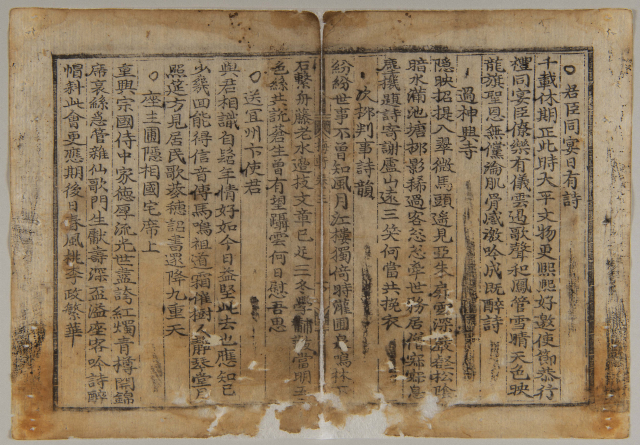 ○君臣同宴日有詩
千載休期正此時太平文物更熙熙好邀使御恭行
禮同宴臣僚樂有儀雲迅歌聲和鳳管雪晴天色映
龍旗聖恩無 淪肌骨感激吟成旣醉詩
過神興寺
隱映招提入翠微馬頭遙見亞朱扉雲深巖壑松吟
暗水滿池塘柳影稀過客怱怱 世務居僧寂寂息
塵機題詩寄謝廬山遠三笑何當共挽衣
次柳判事詩韻
紛紛世事不曾知風月江樓獨倚時簾圃 高林下
石繫舟藤老水邊枝文章已足三冬 當明五
色絲共說蒼生曾有望躡雲何日慰吾思
○送宜州卞使君
與君相識自髫年情好如今日益堅此去也應知己
少幾回能得信音傳馬鳴祖道霜催樹人靜琴堂月
照筵方見居民歌 詔書還降九重天
○座主圃隱相國宅席上
重興宗國侍中家德厚流光世盡誇紅燭青樽開錦
席哀絲急管雜仙歌門生獻壽深盃溢座客吟詩醉
帽斜此會更應期後日春風桃李政繁華